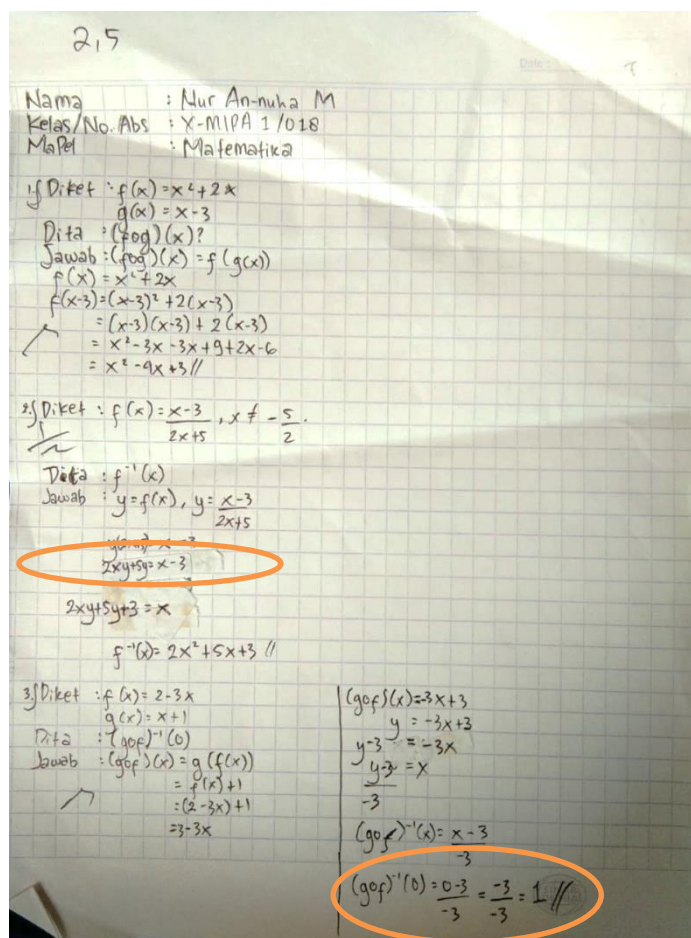 2,5
Date :
Nama : Nur An-nuha M
Kelas/No. Abs : X-MIPA 1/018
MaPel : Matematika
1.) Diket : f(x) = x² + 2x
g(x) = x - 3
Dita : (fog)(x)?
Jawab : (fog)(x) = f(g(x))
f(x) = x² + 2x
f(x-3) = (x-3)² + 2(x-3)
= (x-3)(x-3) + 2(x-3)
= x² - 3x - 3x + 9 + 2x - 6
= x² - 4x + 3 //
2.) Diket : f(x) = x-3 / 2x+5 , x ≠ - 5/2 .
Dita : f⁻¹(x)
Jawab : y = f(x), y = x-3 / 2x+5
2xy+5y = x-3
2xy+5y+3 = x
f⁻¹(x) = 2x² + 5x + 3 //
3.) Diket : f(x) = 2-3x
g(x) = x+1
Dita : (gof)⁻¹(0)
Jawab : (gof)(x) = g(f(x))
= f(x)+1
= (2-3x)+1
= 3-3x
(gof)(x) = -3x+3
y = -3x+3
y-3 = -3x
y-3 / -3 = x
(gof)⁻¹(x) = x-3 / -3
(gof)⁻¹(0) = 0-3 / -3 = -3 / -3 = 1 //